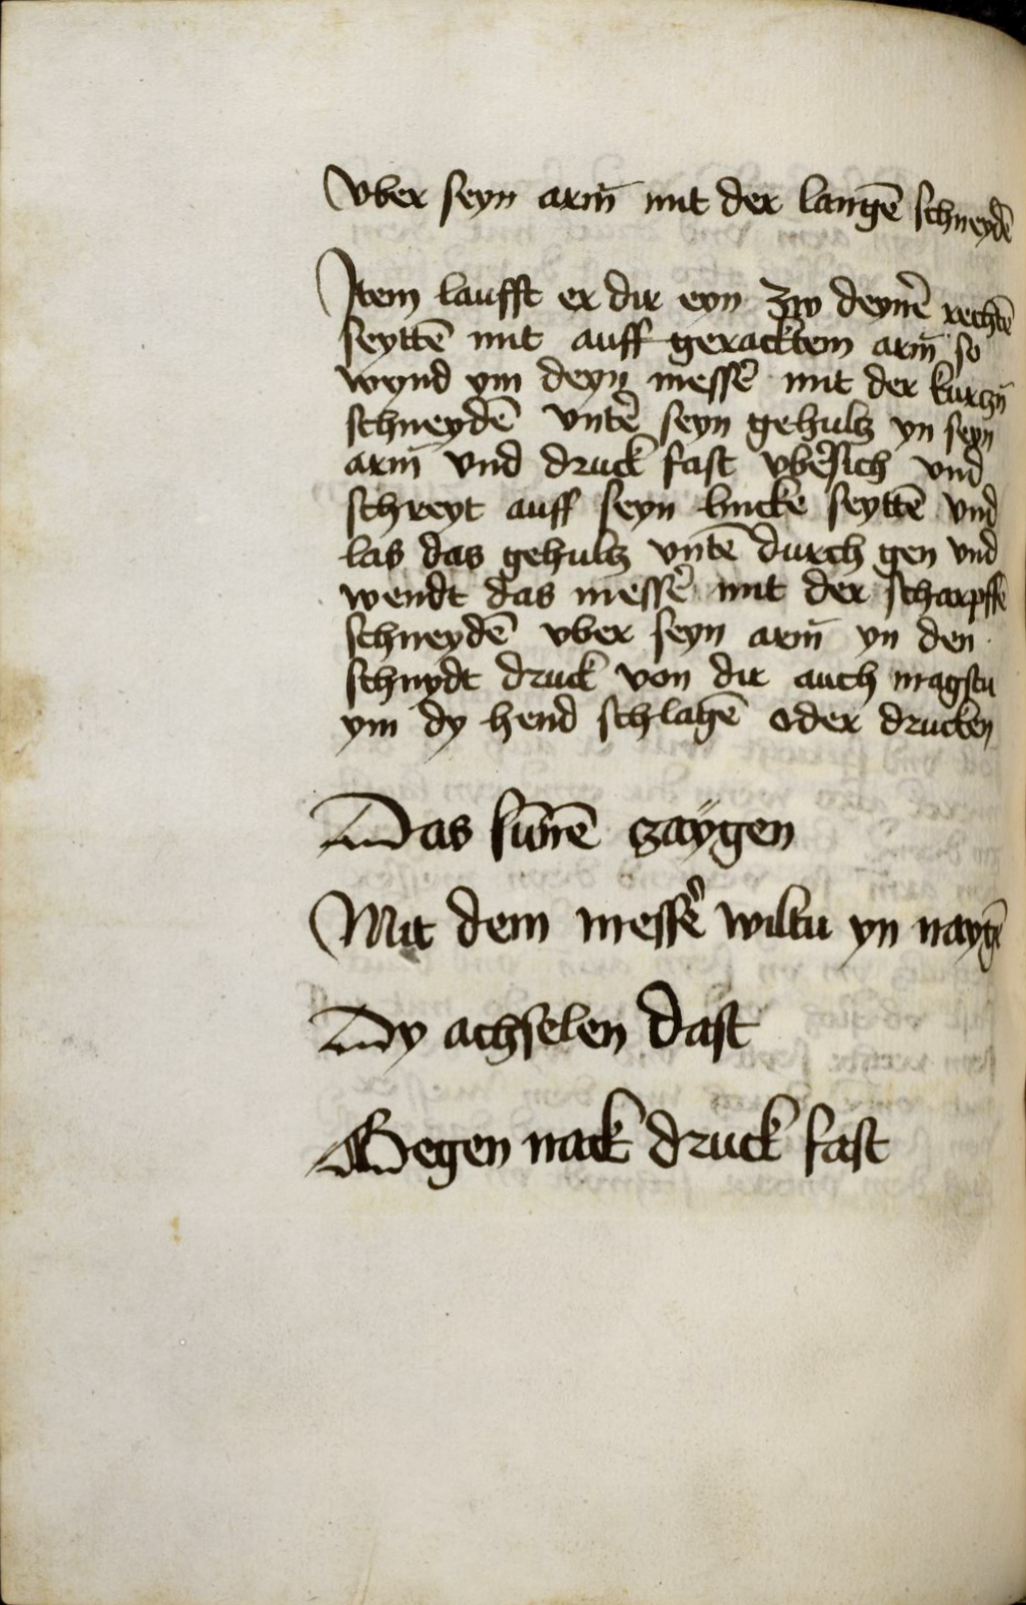 Vber seyn arm̄ mit der langē schneydē
Item laufft er dir eyn zw deynē rechtē
seyttē mit auff geracktem arm̄ so
wynd ym deyn messē mit der kurczn̄
schneydē vntē seyn gehulcz yn seyn
arm̄ vnd druck fast vbē̉sich vnd
schreyt auff seyn lincke seyttē vnd
las das gehulcz vntē durch gen vnd
wendt das messē mit der scharpffē
schneydē vber seyn arm̄ yn den
schnydt druck von dir auch magstu
ym dy hend schlahē oder drucken
Das sun̄ē zaÿgen
Mit dem messē wiltu yn naygē
Dy achselen dast
Gegen nack druck fast